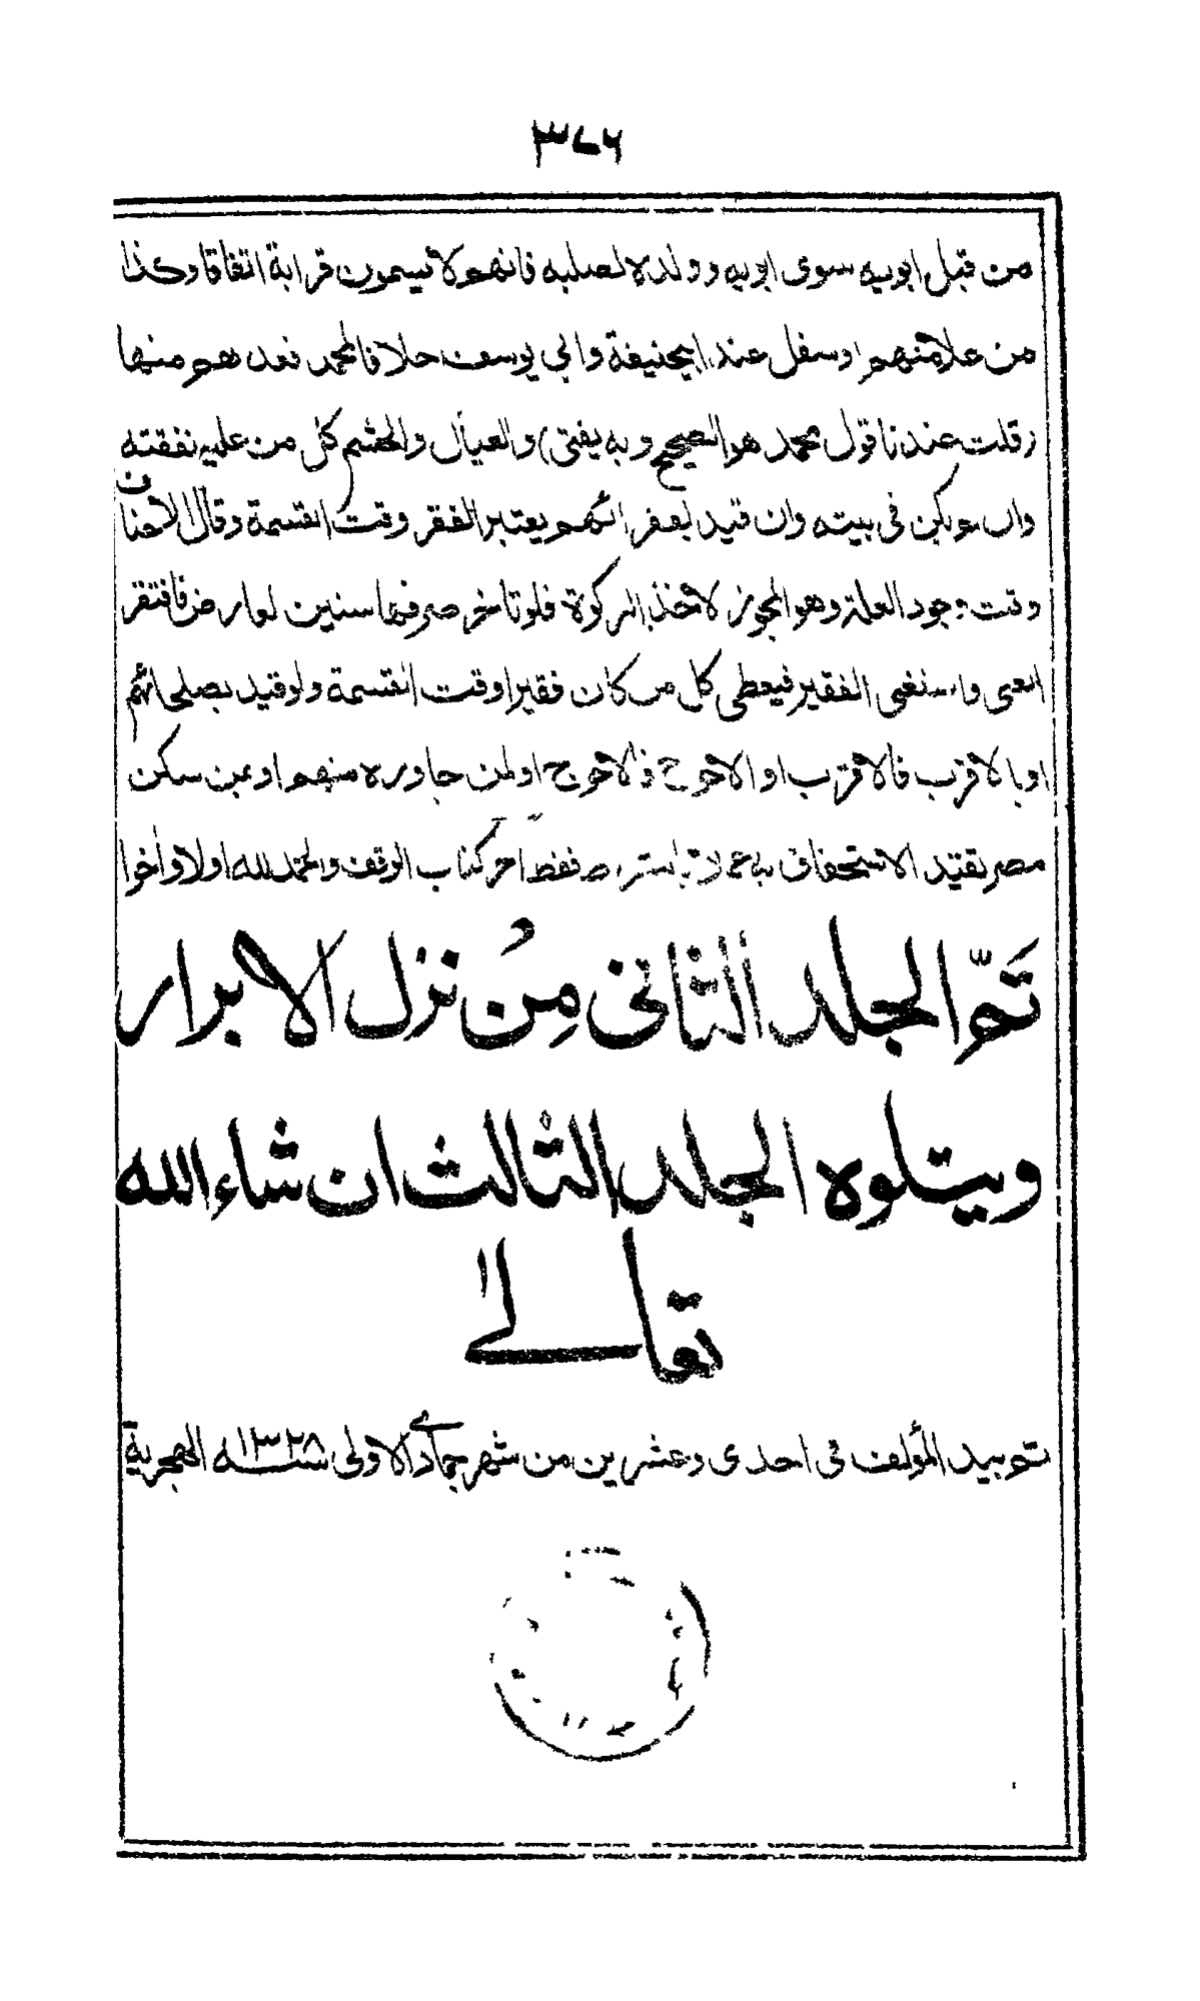 ٣٧٦
من قبل ابويه سوى ابويه وولده لصلبه فانهم لا يسمون قرابة اتفاقا وكذا
من علا منهم او سفل عند ابيحنيفة وابي يوسف خلافا لمحمد فعدهم منها
(قلت عندنا قول محمد هو الصحيح وبه يفتى) والعيال والحشم كل من عليه نفقته
وان لم يكن فى بيته وان قيد بفقرائهم يعتبر الفقر وقت القسمة وقال الاحناف
وقت وجود الغلة وهو المجوز لاخذ الزكوة فلو تاخر صرفها سنين لعارض فافتقر
الغنى واستغنى الفقير فيعطى كل من كان فقيرا وقت القسمة ولو قيد بصلحائهم
او بالاقرب فالاقرب او الاحوج فالاحوج او لمن جاوره منهم او بمن سكن
مصر تقيد الاستحقاق به عملا بالشرط فقط اخر كتاب الوقف والحمد لله اولا واخرا
تَمّ المجلد الثانى مِن نُزل الابرار
ويتلوه المجلد الثالث ان شاء الله
تعالىٰ
تم بيد المؤلف فى احدى وعشرين من شهر جمادى الاولى سنه ١٣٢٨ الهجرية